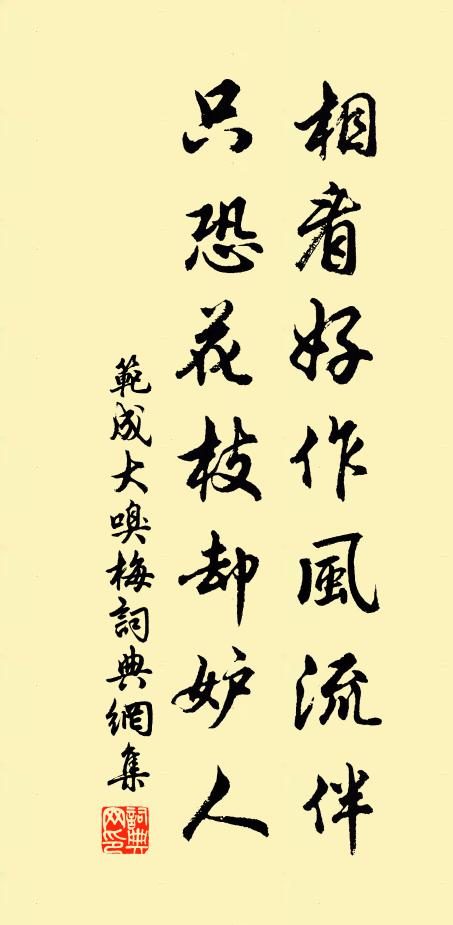 相看好作風流伴
只恐花枝却妒人
範成大嗅梅詞典網集
詞典网印